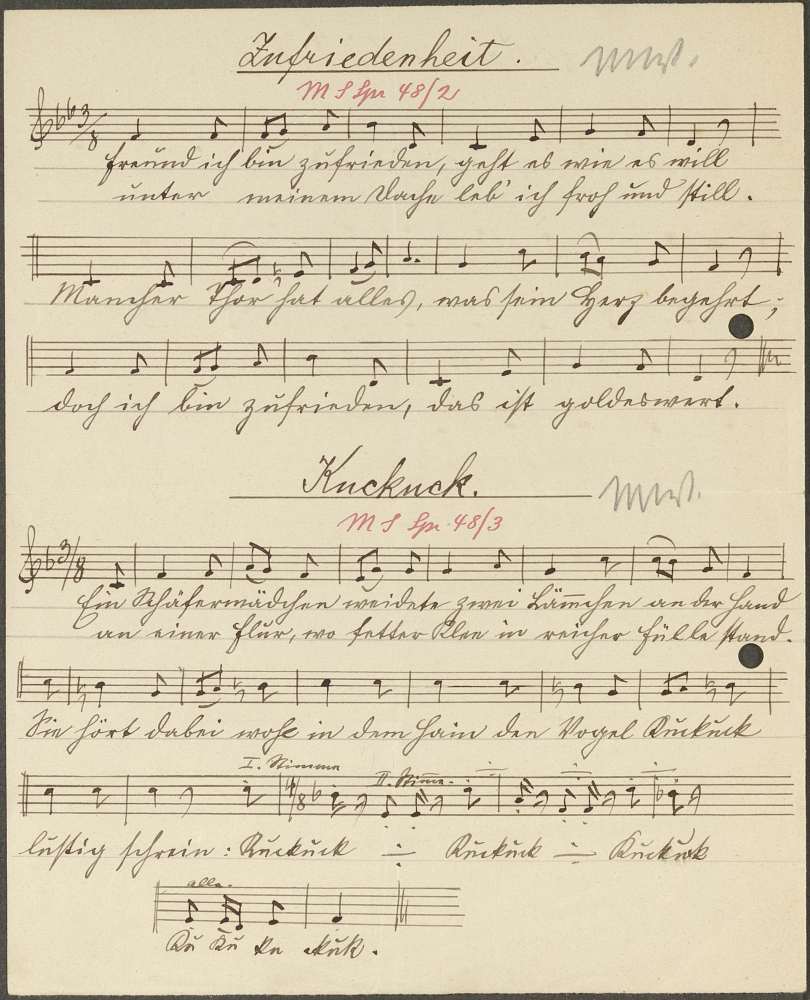 Zufriedenheit.
M S Spr 48/2
3/8
Freund ich bin zufrieden, geht es wie es will
unter meinem Dache leb' ich froh und still.
Mancher Thor hat alles, was sein Herz begehrt;
doch ich bin zufrieden, das ist goldeswert.
Kuckuck.
M S Spr 48/3
3/8
Ein Schäfermädchen weidete zwei Läm̅chen an der Hand
an einer Flur, wo fetter Klee in reicher Fülle stand.
Sie hört dabei wohl in dem Hain den Vogel Kuckuck
I. Stimme
II. Stim̅e.
4/8
lustig schrein: Kuckuck ÷ Kuckuck ÷ Kuckuck
alle.
Ku Ku Ku kuk.